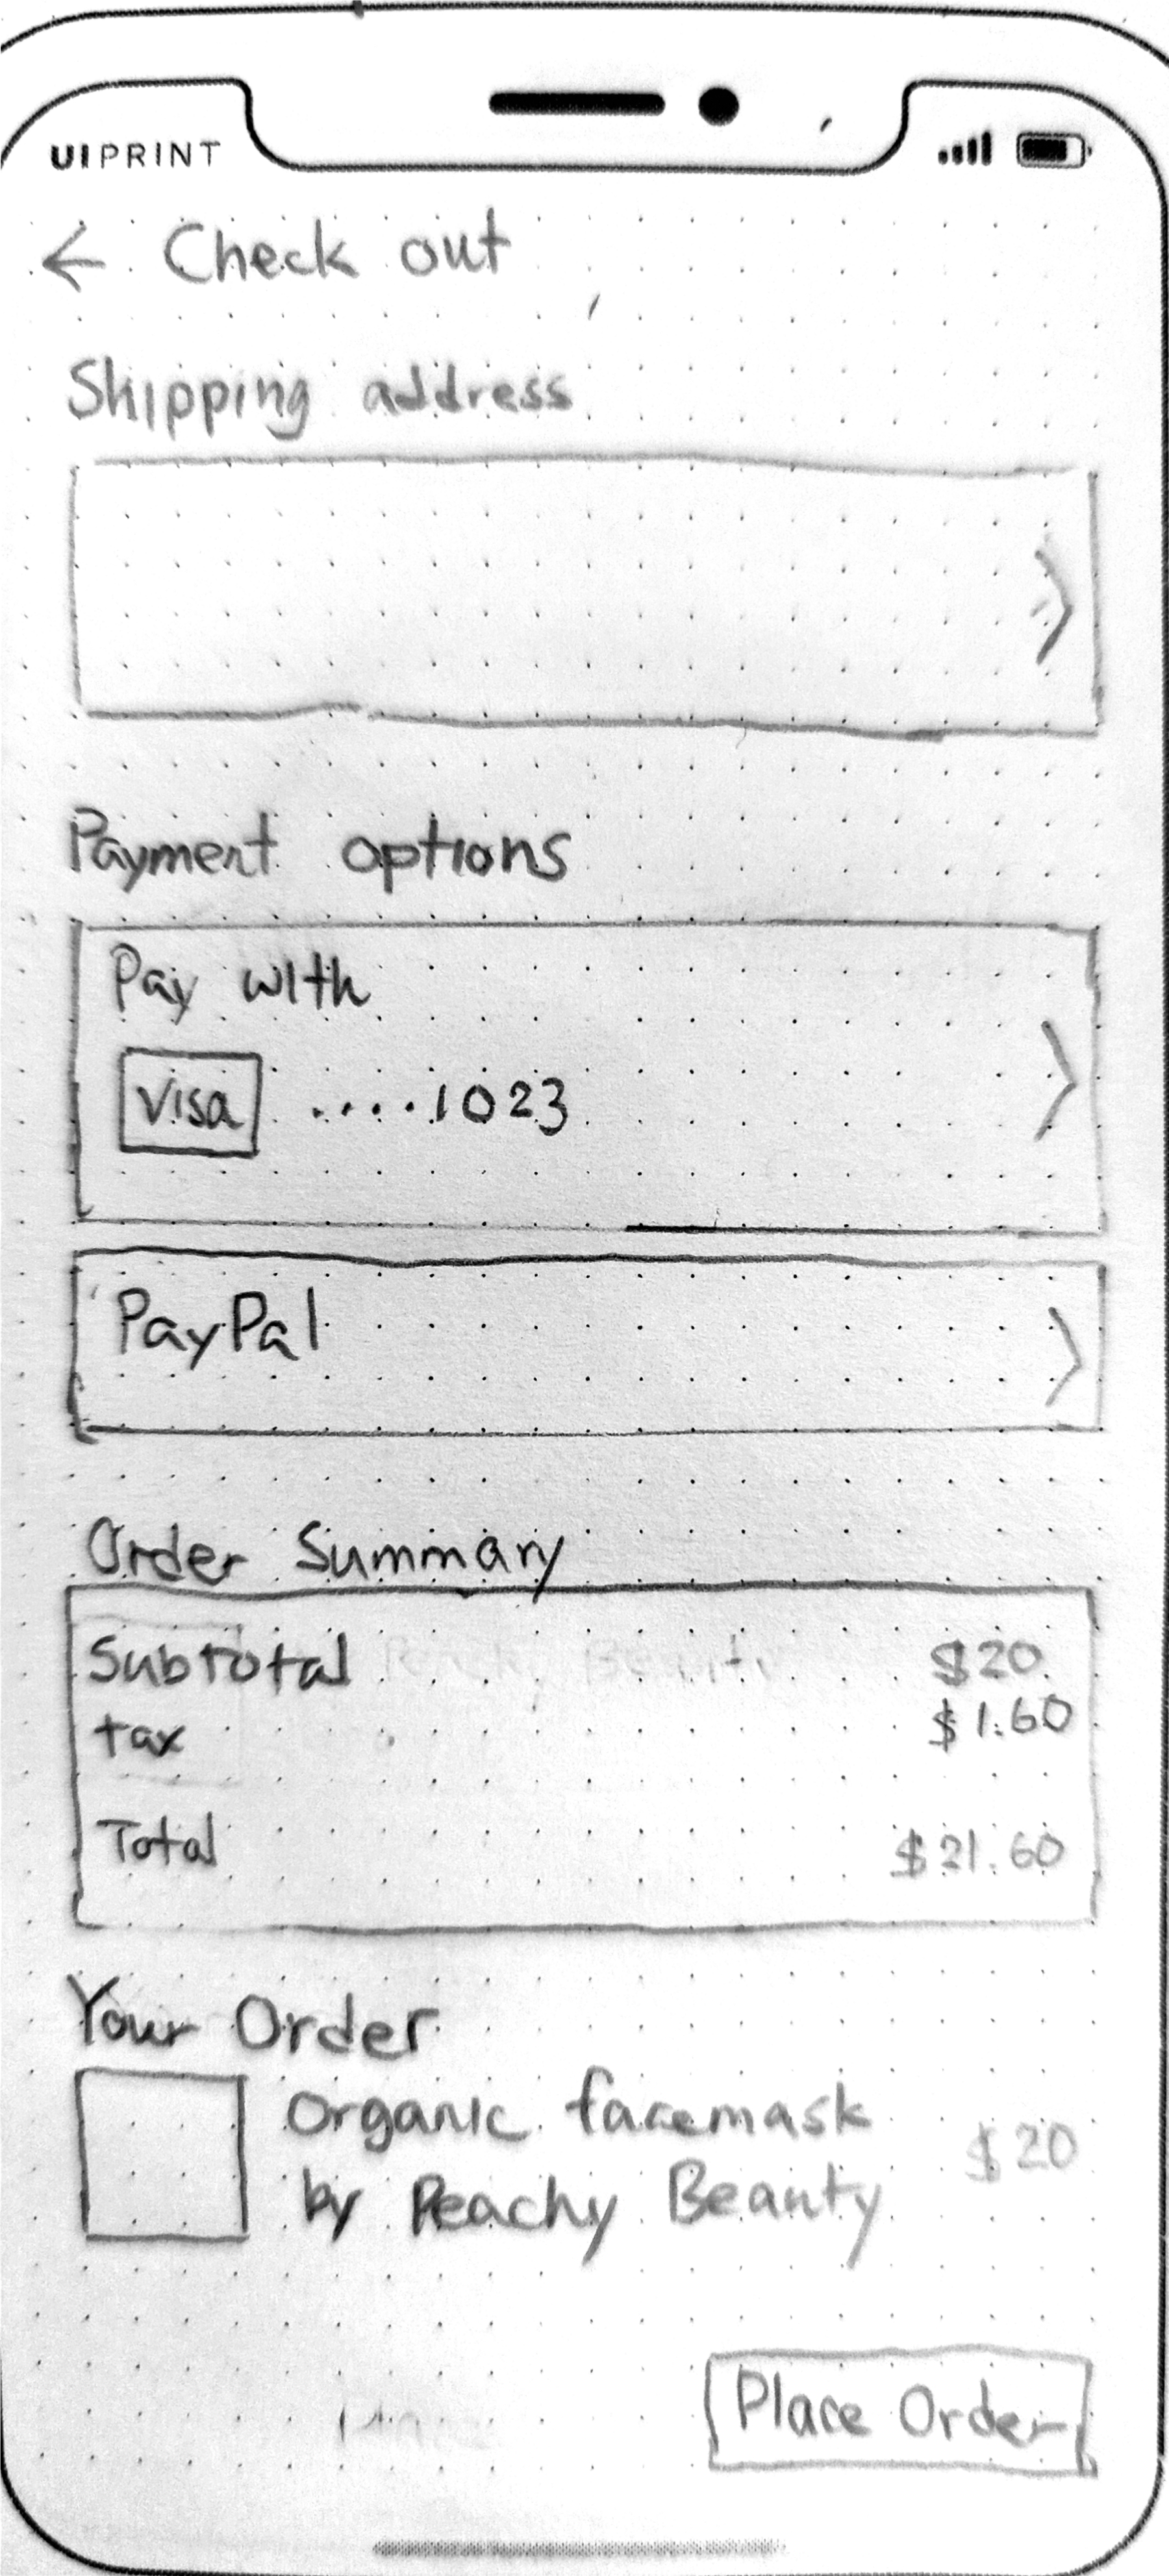 UIPRINT
← Check out
Shipping address
Payment options
Pay with
Visa ....1023
PayPal
Order Summary
Subtotal $20
tax $1.60
Total $21.60
Your Order
Organic facemask $20
by Peachy Beauty
Place Order